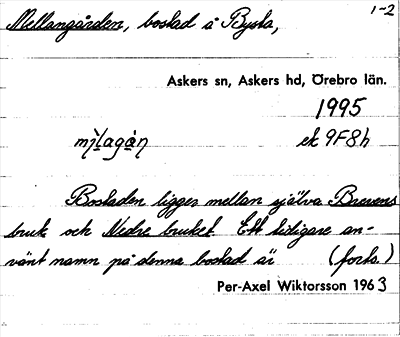 Mellangården, bostad å Bysta,
1-2
Askers sn, Askers hd, Örebro län.
1995
ek 9F8h
Bostaden ligger mellan själva Brevens
bruk och Nedre bruket. Ett tidigare an-
vänt namn på denna bostad är (forts.)
Per-Axel Wiktorsson 1963